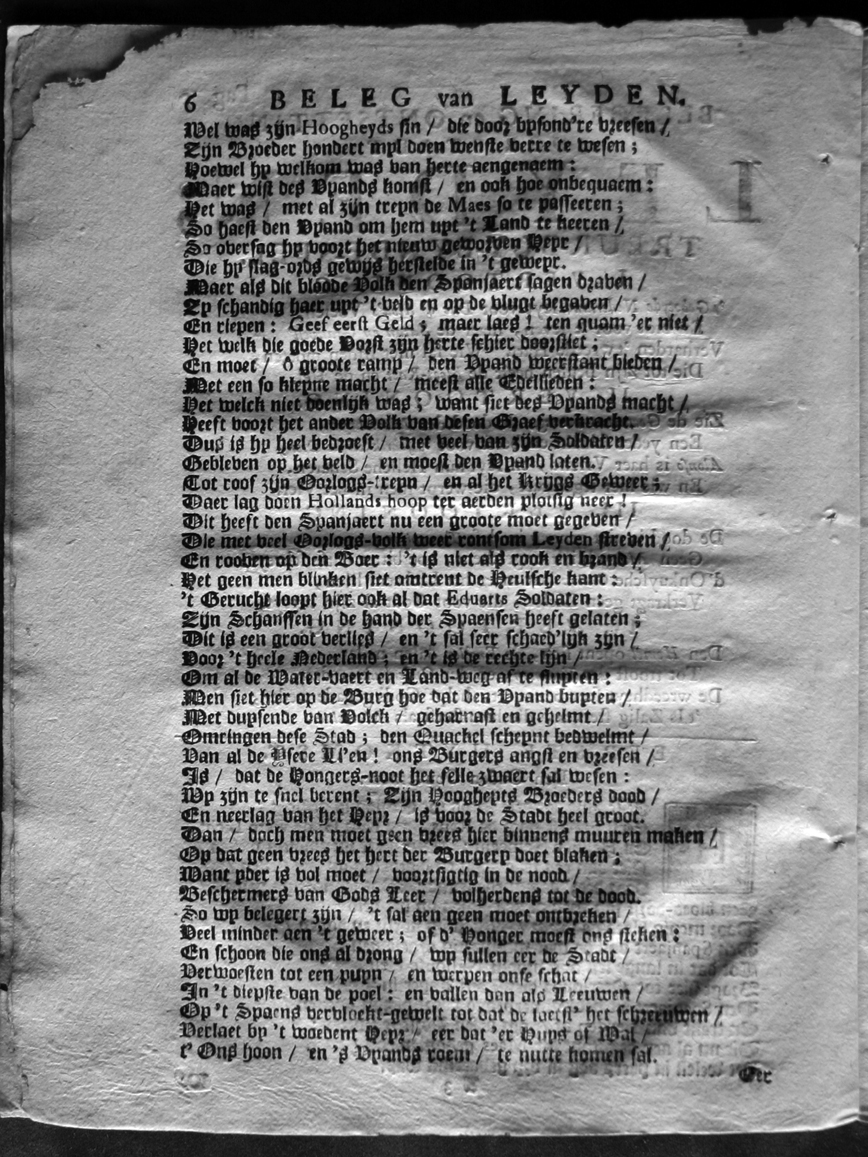 6 BELEG van LEYDEN.
Wel was zijn Hoogheyds sin / die door bysond're vreesen /
Zijn Broeder hondert myl doen wenste verre te wesen ;
Hoewel hy welkom was van herte aengenaem :
Maer wist des Vyands komst / en ook hoe onbequaem :
Het was / met al zijn treyn de Maes so te passeeren ;
So haest den Vyand om hem uyt 't Land te keeren /
So oversag hy voort het nieuw geworven Heyr /
Die hy slag-ords gewijs herstelde in 't geweyr.
Maer als dit bloode Volk den Spanjaert sagen draven /
Zy schandig haer uyt 't veld en op de vlugt begaven /
En riepen : Geef eerst Geld ; maer laes ! ten quam 'er niet /
Het welk die goede Vorst zijn herte schier doorstiet ;
En moet / ô groote ramp / den Vyand weerstant bieden /
Met een so kleyne macht / meest alle Edellieden :
Het welck niet doenlyk was ; want siet des Vyands macht /
Heeft voort het ander Volk van desen Graef verkracht.
Dus is hy heel bedroeft / met veel van zijn Soldaten /
Gebleven op het veld / en moest den Vyand laten.
Tot roof zijn Oorlogs-treyn / en al het Krijgs Geweer ;
Daer lag doen Hollands hoop ter aerden plotsig neer !
Dit heeft den Spanjaert nu een groote moet gegeven /
Die met veel Oorlogs-volk weer rontsom Leyden streven /
En rooven op den Boer : 't is niet als rook en brand /
Het geen men blinken siet omtrent de Heulsche kant :
't Gerucht loopt hier ook al dat Eduarts Soldaten :
Zijn Schanssen in de hand der Spaensen heeft gelaten ;
Dit is een groot verlies / en 't sal seer schaed'lijk zijn /
Voor 't heele Nederland ; en 't is de rechte lijn /
Om al de Water-vaert en Land-weg af te sluyten :
Men siet hier op de Burg hoe dat den Vyand buyten /
Met duysende van Volck / geharnast en gehelmt /
Omringen dese Stad ; den Quackel scheynt bedwelmt /
Van al de Ysere Li'en ! ons Burgers angst en vreesen /
Is / dat de Hongers-noot het felle zwaert sal wesen :
Wy zijn te snel berent ; Zijn Hoogheyts Broeders dood /
En neerlag van het Heyr / is voor de Stadt heel groot.
Dan / doch men moet geen vrees hier binnens muuren maken /
Op dat geen vrees het hert der Burgery doet blaken ;
Want yder is vol moet / voorsigtig in de nood /
Beschermers van Gods Leer / volherdens tot de dood.
So wy belegert zijn / 't sal aen geen moet ontbreken /
Veel minder aen 't geweer ; of d' Honger moest ons steken :
En schoon die ons al drong / wy sullen eer de Stadt /
Verwoesten tot een puyn / en werpen onse schat /
In 't diepste van de poel : en vallen dan als Leeuwen /
Op 't Spaens vervloekt-gewelt tot dat de laetst' het schreeuwen /
Verlaet by 't woedent Heyr / eer dat 'er Huys of Wal /
t' Ons hoon / en 's Vyands roem / te nutte komen sal.
Eer